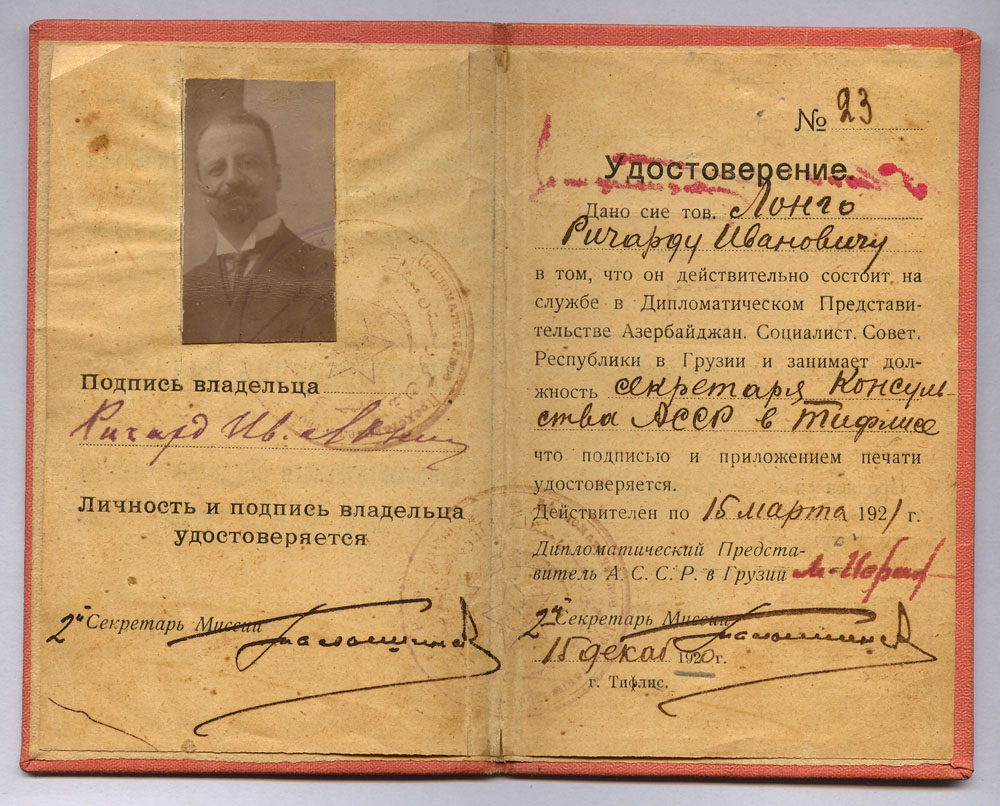 Подпись владельца
Ричард Ив. Лонго
Личность и подпись владельца
удостоверяется
2й Секретарь Миссии
№ 23
Удостоверение.
Дано сие тов. Лонго
Ричарду Ивановичу
в том, что он действительно состоит на
службе в Дипломатическом Представи-
тельстве Азербайджан. Социалист. Совет.
Республики в Грузии и занимает дол-
жность секретаря Консуль-
ства АССР в Тифлисе
что подписью и приложением печати
удостоверяется.
Действителен по 15 марта 1921 г.
Дипломатический Предста-
витель А. С. С. Р. в Грузии
2й Секретарь Миссии
15 декаб 1920 г.
г. Тифлис.